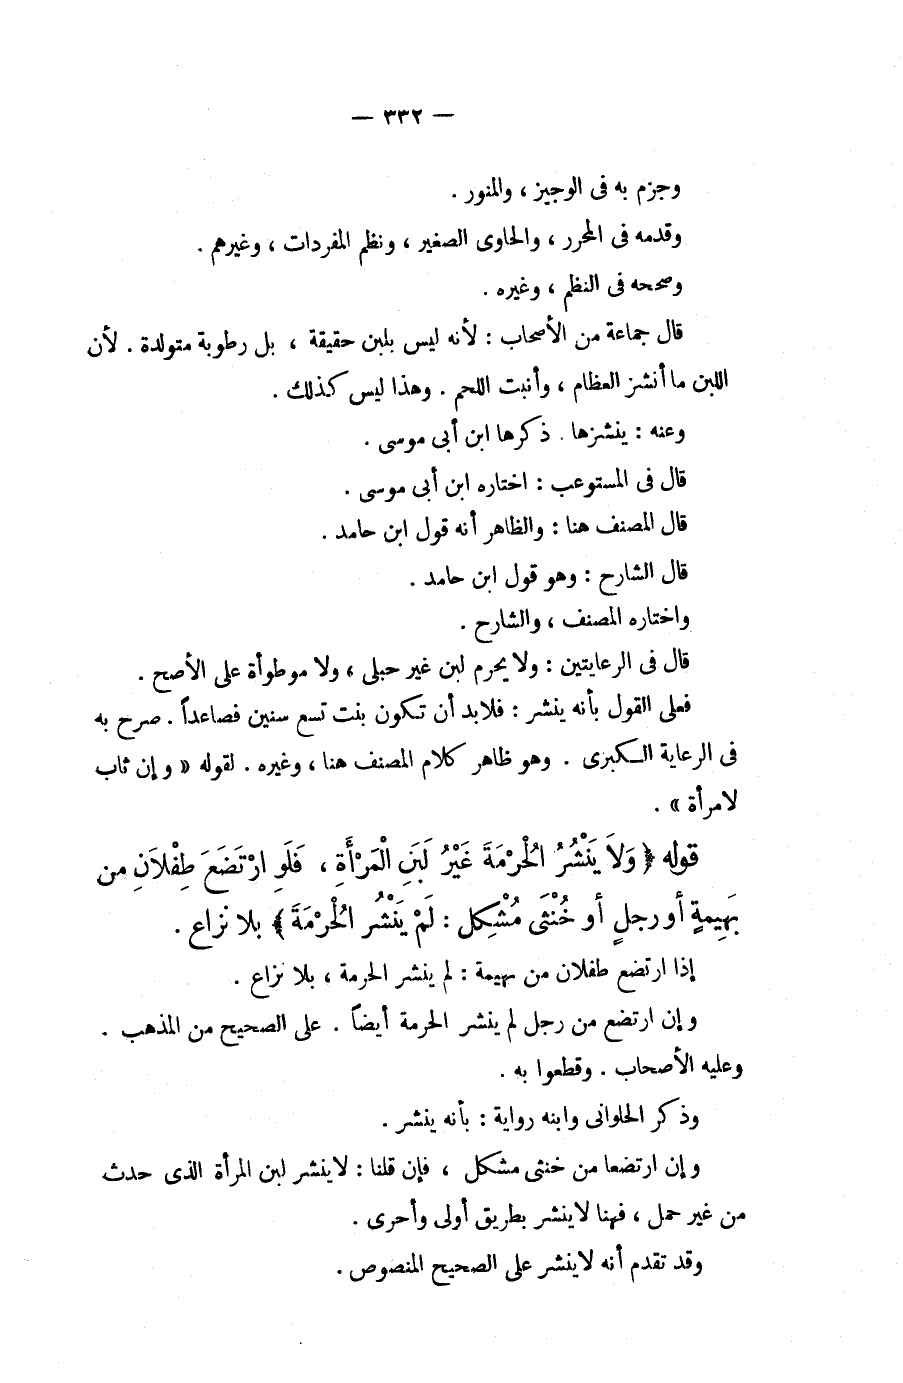 — ٣٣٢ —
وجزم به فى الوجيز ، والمنور .
وقدمه فى المحرر ، والحاوى الصغير ، ونظم المفردات ، وغيرهم .
وصححه فى النظم ، وغيره .
قال جماعة من الأصحاب : لأنه ليس بلبن حقيقة ، بل رطوبة متولدة . لأن
اللبن ما أنشز العظام ، وأنبت اللحم . وهذا ليس كذلك .
وعنه : ينشزها . ذكرها ابن أبى موسى .
قال فى المستوعب : اختاره ابن أبى موسى .
قال المصنف هنا : والظاهر أنه قول ابن حامد .
قال الشارح : وهو قول ابن حامد .
واختاره المصنف ، والشارح .
قال فى الرعايتين : ولا يحرم لبن غير حبلى ، ولا موطوأة على الأصح .
فعلى القول بأنه ينشر : فلابد أن تكون بنت تسع سنين فصاعداً . صرح به
فى الرعاية الكبرى . وهو ظاهر كلام المصنف هنا ، وغيره . لقوله « وإن ثاب
لامرأة » .
قوله ﴿ وَلاَ يَنْشُرُ الْحُرْمَةَ غَيْرُ لَبَنِ الْمَرْأَةِ ، فَلَوِ ارْتَضَعَ طِفْلاَنِ من
بَهِيمةٍ أو رجلٍ أو خُنْثَى مُشْكِل : لَمْ يَنْشُر الْحُرْمَةَ ﴾ بلا نزاع .
إذا ارتضع طفلان من بهيمة : لم ينشر الحرمة ، بلا نزاع .
وإن ارتضع من رجل لم ينشر الحرمة أيضاً . على الصحيح من المذهب .
وعليه الأصحاب . وقطعوا به .
وذكر الحلوانى وابنه رواية : بأنه ينشر .
وإن ارتضعا من خنثى مشكل ، فإن قلنا : لاينشر لبن المرأة الذى حدث
من غير حمل ، فهنا لاينشر بطريق أولى وأحرى .
وقد تقدم أنه لاينشر على الصحيح المنصوص .